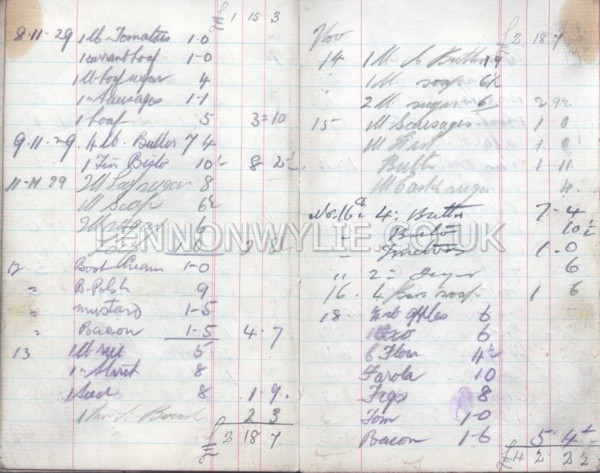 £ 1 15 3
8-11-29 1 lb Tomatoes 1-0
1 currant loaf 1-0
1 lb loaf sugar 4
1 " Sausages 1-1
1 loaf 5 3=10
9-11-29 4 lb. Butter 7 4
1 Tin Bisto 10½ 8 2½
11-11-29 8
1 lb Soap 6½
2 8
LENNONWYLIE.CO.UK
12 Boot Cream 1-0
" B. Polish 9
" mustard 1-5
" Bacon 1-5 4-7
13 1 lb rice 5
8
8 1-9
Bread 2 3
£ 2 18 7
Nov £ 2 18 7
14 1 lb Butter
1 lb soap 6½
2 lb sugar 6 2 9½
15 1 lb Sausages 1 0
1 lb 1 0
Butter 1 - 11
1 lb sugar 4
Nov. 16th 4 " Butter 7-4
" 10½
" 1-0
" 2 = Sugar 6
16. 4 Bars soap 1 6
18 apples 6
6
Flour 4½
Farola 10
Figs 8
Tom 1-0
Bacon 1-6 5-4½
£4 2 2½